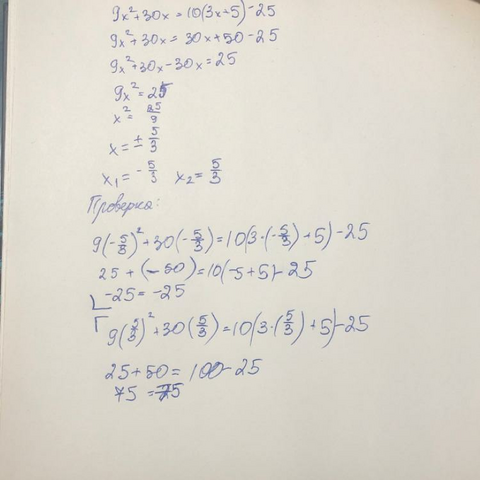 9x²+30x=10(3x+5)-25
9x²+30x=30x+50-25
9x²+30x-30x=25
9x²=25
x²=25/9
x=±5/3
x₁=-5/3 x₂=5/3
Проверка:
9(-5/3)²+30(-5/3)=10(3·(-5/3)+5)-25
25+(-50)=10(-5+5)-25
-25=-25
9(5/3)²+30(5/3)=10(3·(5/3)+5)-25
25+50=100-25
75=75